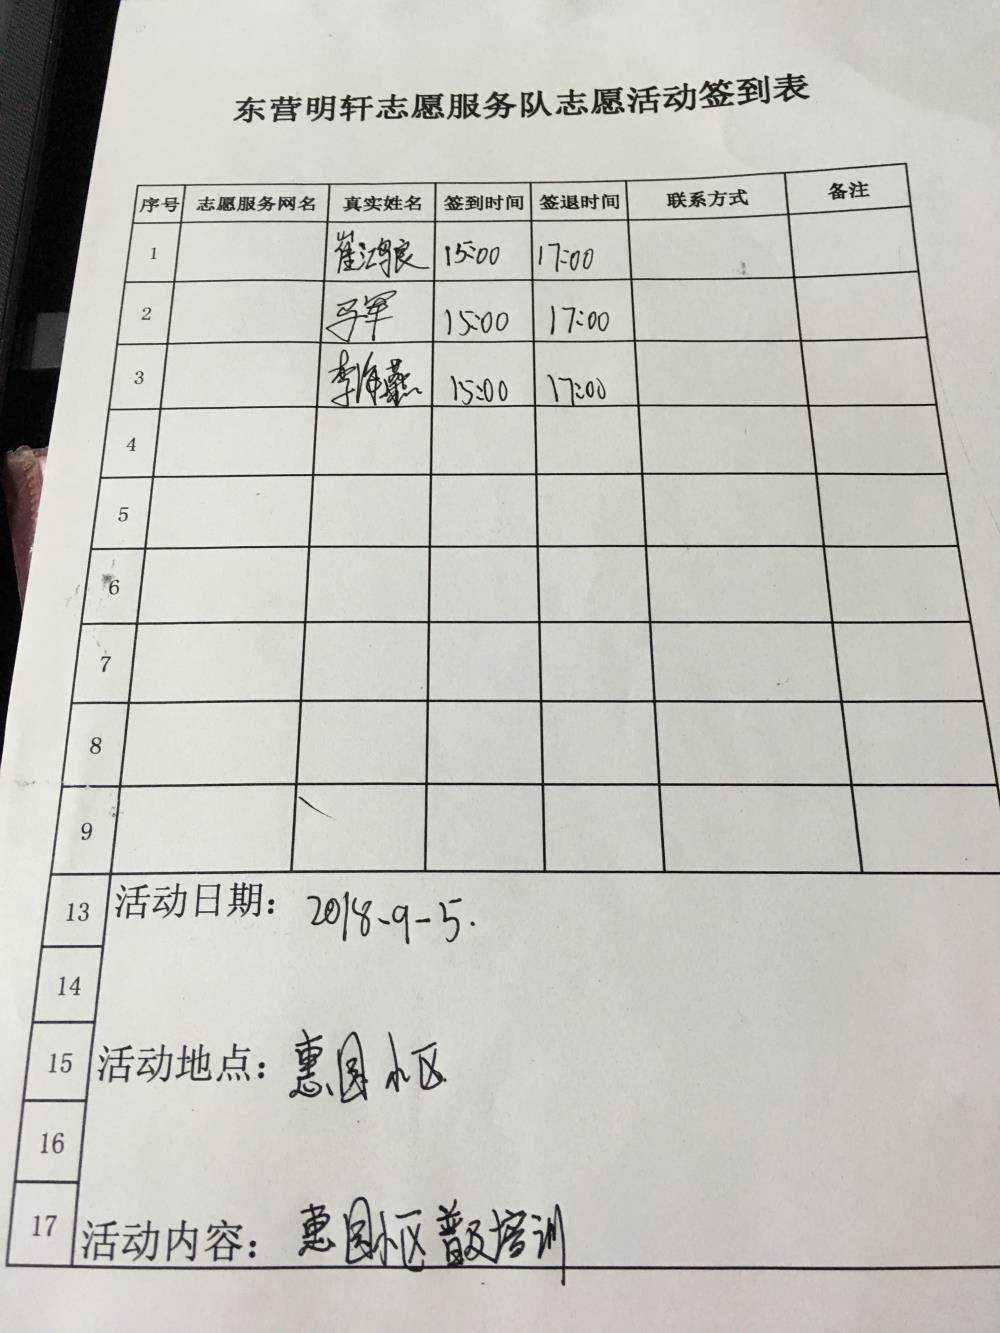 东营明轩志愿服务队志愿活动签到表
序号 志愿服务网名 真实姓名 签到时间 签退时间 联系方式 备注
1 崔鸿良 15:00 17:00
2 马军 15:00 17:00
3 李海燕 15:00 17:00
4
5
6
7
8
9
13 活动日期： 2018-9-5.
14
15 活动地点： 惠园小区
16
17 活动内容： 惠园小区普及培训